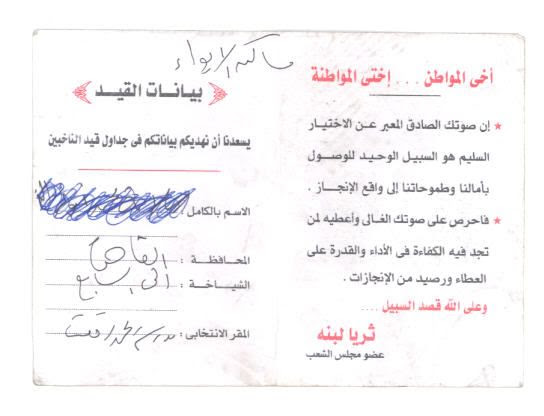 أخى المواطن ... إختى المواطنة
★ إن صوتك الصادق المعبر عن الاختيار
السليم هو السبيل الوحيد للوصول
بأمالنا وطموحاتنا إلى واقع الإنجاز .
★ فاحرص على صوتك الغالى وأعطيه لمن
تجد فيه الكفاءة فى الأداء والقدرة على
العطاء ورصيد من الإنجازات .
وعلى الله قصد السبيل ....
ثريا لبنه
عضو مجلس الشعب
بيانات القيد
يسعدنا أن نهديكم بياناتكم فى جداول قيد الناخبين
الاسم بالكامل :
المحافظة : القاهرة
الشياخة :
المقر الانتخابى :